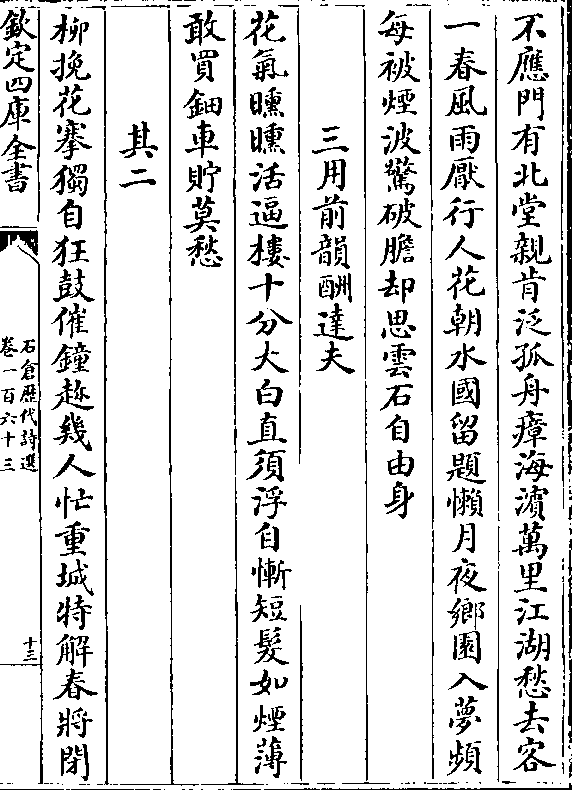 不應門有北堂親肯泛孤舟瘴海濵萬里江湖愁去客
一春風雨厭行人花朝水國留題懶月夜鄉園入夢頻
每被煙波驚破膽却思雲石自由身
三用前韻酬達夫
花氣曛曛活逼樓十分大白直須浮自慚短髮如煙薄
敢買鈿車貯莫愁
其二
柳挽花搴獨自狂鼓催鐘趂幾人忙重城特解春將閉
欽定四庫全書
石倉歴代詩選
卷一百六十三
十三